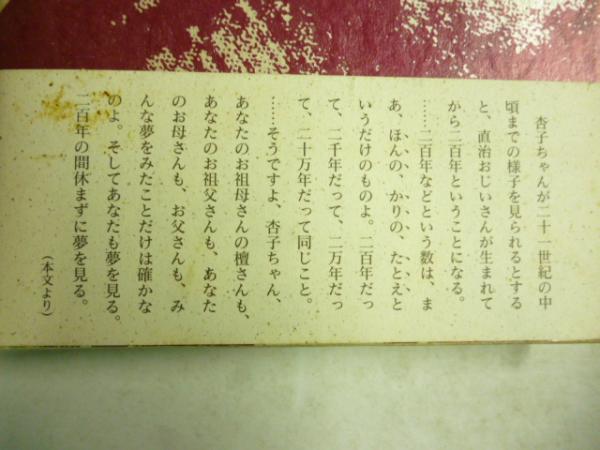 杏子ちゃんが二十一世紀の中
頃までの様子を見られるとする
と、直治おじいさんが生まれて
から二百年ということになる。
……二百年などという数は、ま
あ、ほんの、かりの、たとえと
いうだけのものよ。二百年だっ
て、二千年だって、二万年だっ
て、二十万年だって同じこと。
……そうですよ、杏子ちゃん、
あなたのお祖母さんの檀さんも、
あなたのお祖父さんも、あなた
のお母さんも、お父さんも、み
んな夢をみたことだけは確かな
のよ。そしてあなたも夢を見る。
二百年の間休まずに夢を見る。
（本文より）